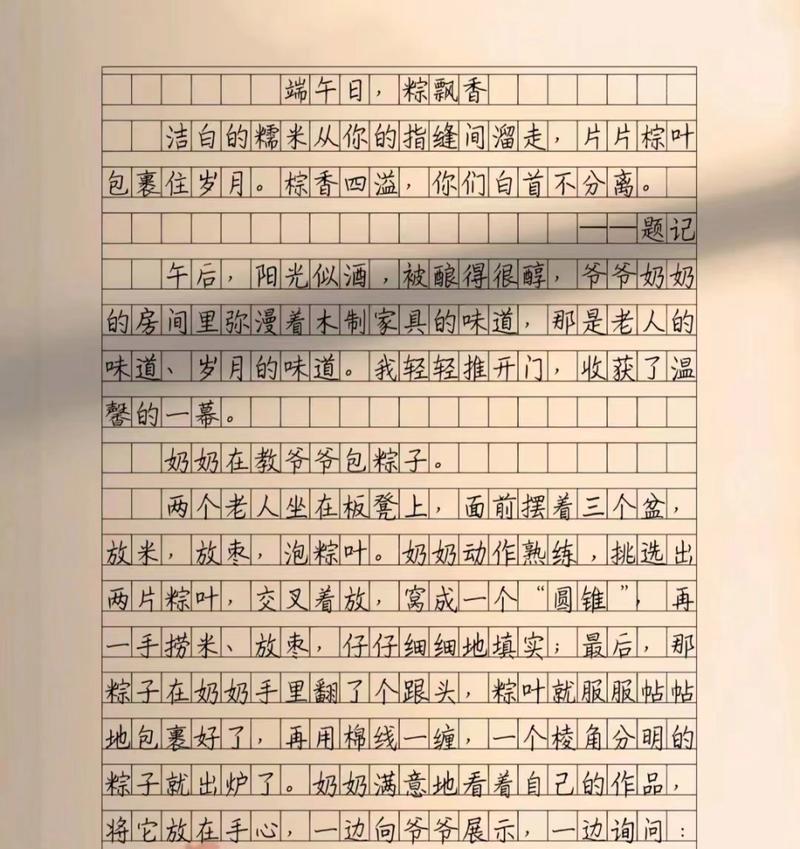 端午日，粽飘香
洁白的糯米从你的指缝间溜走，片片棕叶
包裹住岁月。棕香四溢，你们白首不分离。
——题记
午后，阳光似酒，被酿得很醇，爷爷奶奶
的房间里弥漫着木制家具的味道，那是老人的
味道、岁月的味道。我轻轻推开门，收获了温
馨的一幕。
奶奶在教爷爷包粽子。
两个老人坐在板凳上，面前摆着三个盆，
放米，放枣，泡粽叶。奶奶动作熟练，挑选出
两片粽叶，交叉着放，窝成一个“圆锥”，再
一手捞米、放枣，仔仔细细地填实；最后，那
粽子在奶奶手里翻了个跟头，粽叶就服服帖帖
地包裹好了，再用棉线一缠，一个棱角分明的
粽子就出炉了。奶奶满意地看着自己的作品，
将它放在手心，一边向爷爷展示，一边询问：